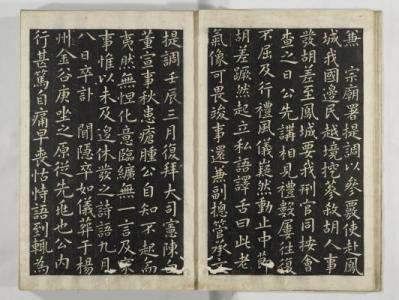 兼　宗廟署提調以參覈使赴鳳
城我國邊民越境挖蔘故胡人事
發胡差至鳳城要我刑官同按會
查之日公先講相見禮數屢往復
不屈及行禮風儀嶷然動止中節
胡差蹶然起立私語譯舌曰此老
氣像可畏竣事還兼副摠管承
提調壬辰三月復拜大司憲陳
董宣事秋患瘡腫公自知不起而
夷然無怛化意臨纊無一言及家
事惟以未及退休發之詩語九月
八日卒訃　聞隱卒如儀葬于楊
州金谷庚坐之原從先兆也公內
行甚篤自痛早喪怙恃語到輒為